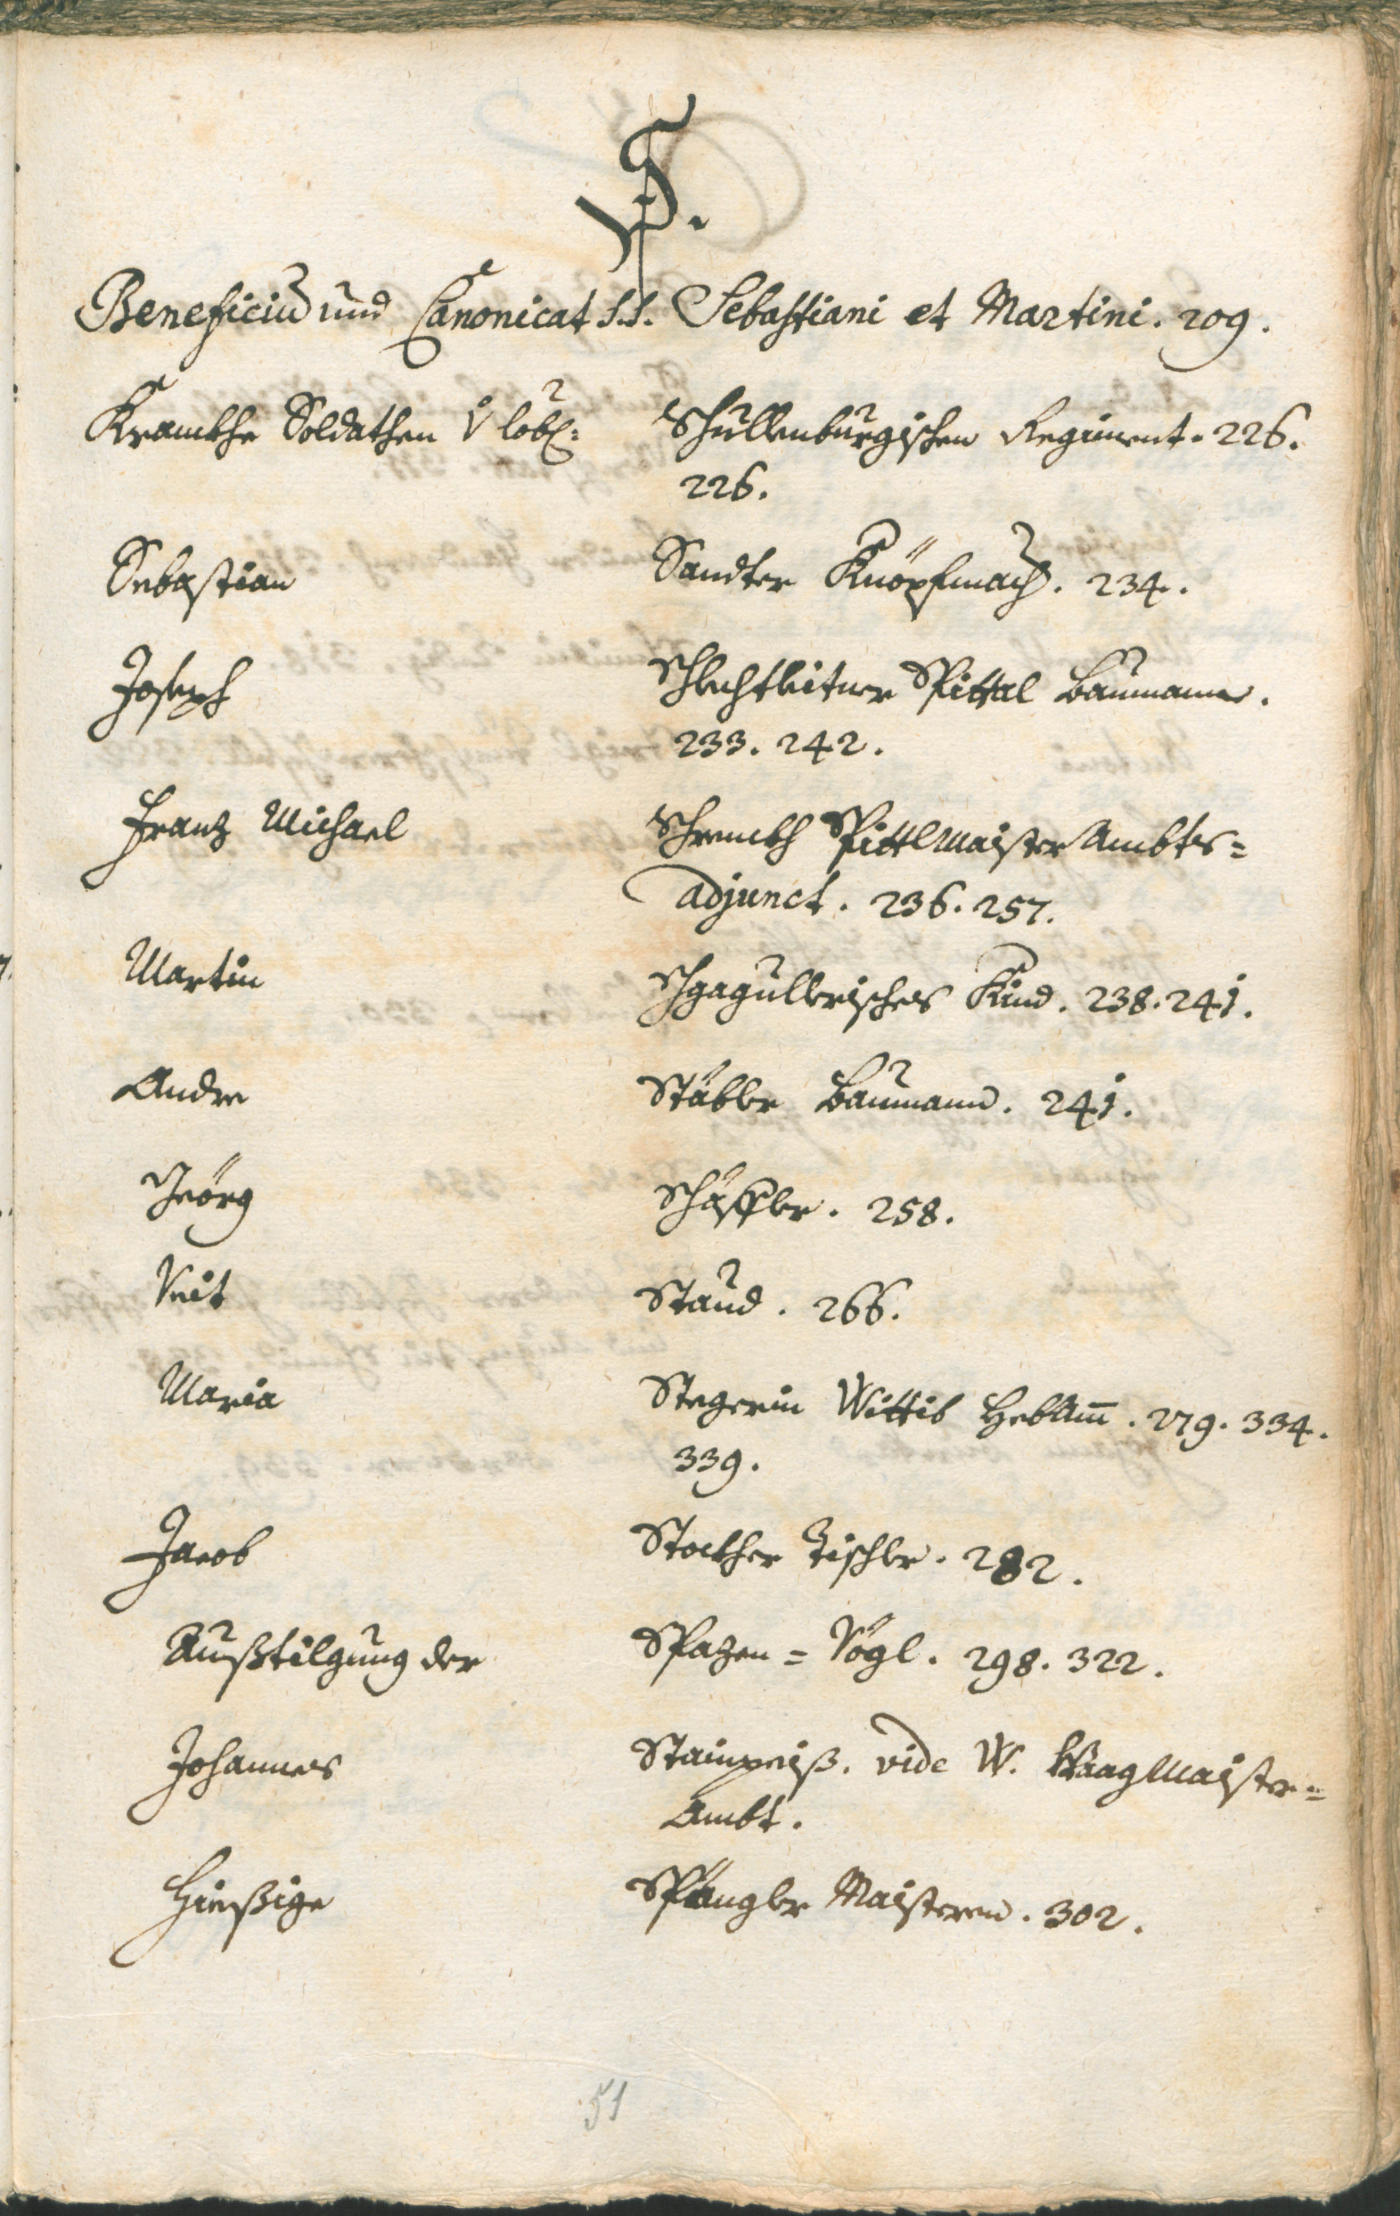 S.
Beneficiu͠ und Canonicat S.S. Sebastiani et Martini. 209.
Kranckhe Soldathen V löbl: Schullenburgischen Regiment. 226.
226.
Sebastian Sandter Knöpfmach. 234.
Joseph Schlechtleitner Spittal Baumann.
233. 242.
Franz Michael Schrenckh Spittlmaister Ambts=
adjunct. 236. 257.
Martin Schgagullerisches Kind. 238. 241.
Andre Stäbler Baumann. 241.
Jeörg Schäffler. 258.
Veit Staud. 266.
Maria Stegerin Wittib HebAm̅. 279. 334.
339.
Jacob Stockher Tischler. 282.
Außtilgung der Spazen = Vögl. 298. 322.
Johannes Stainpeiß. vide W. Waagmaister=
Ambt.
Hießige Spängler Maisteren. 302.
51